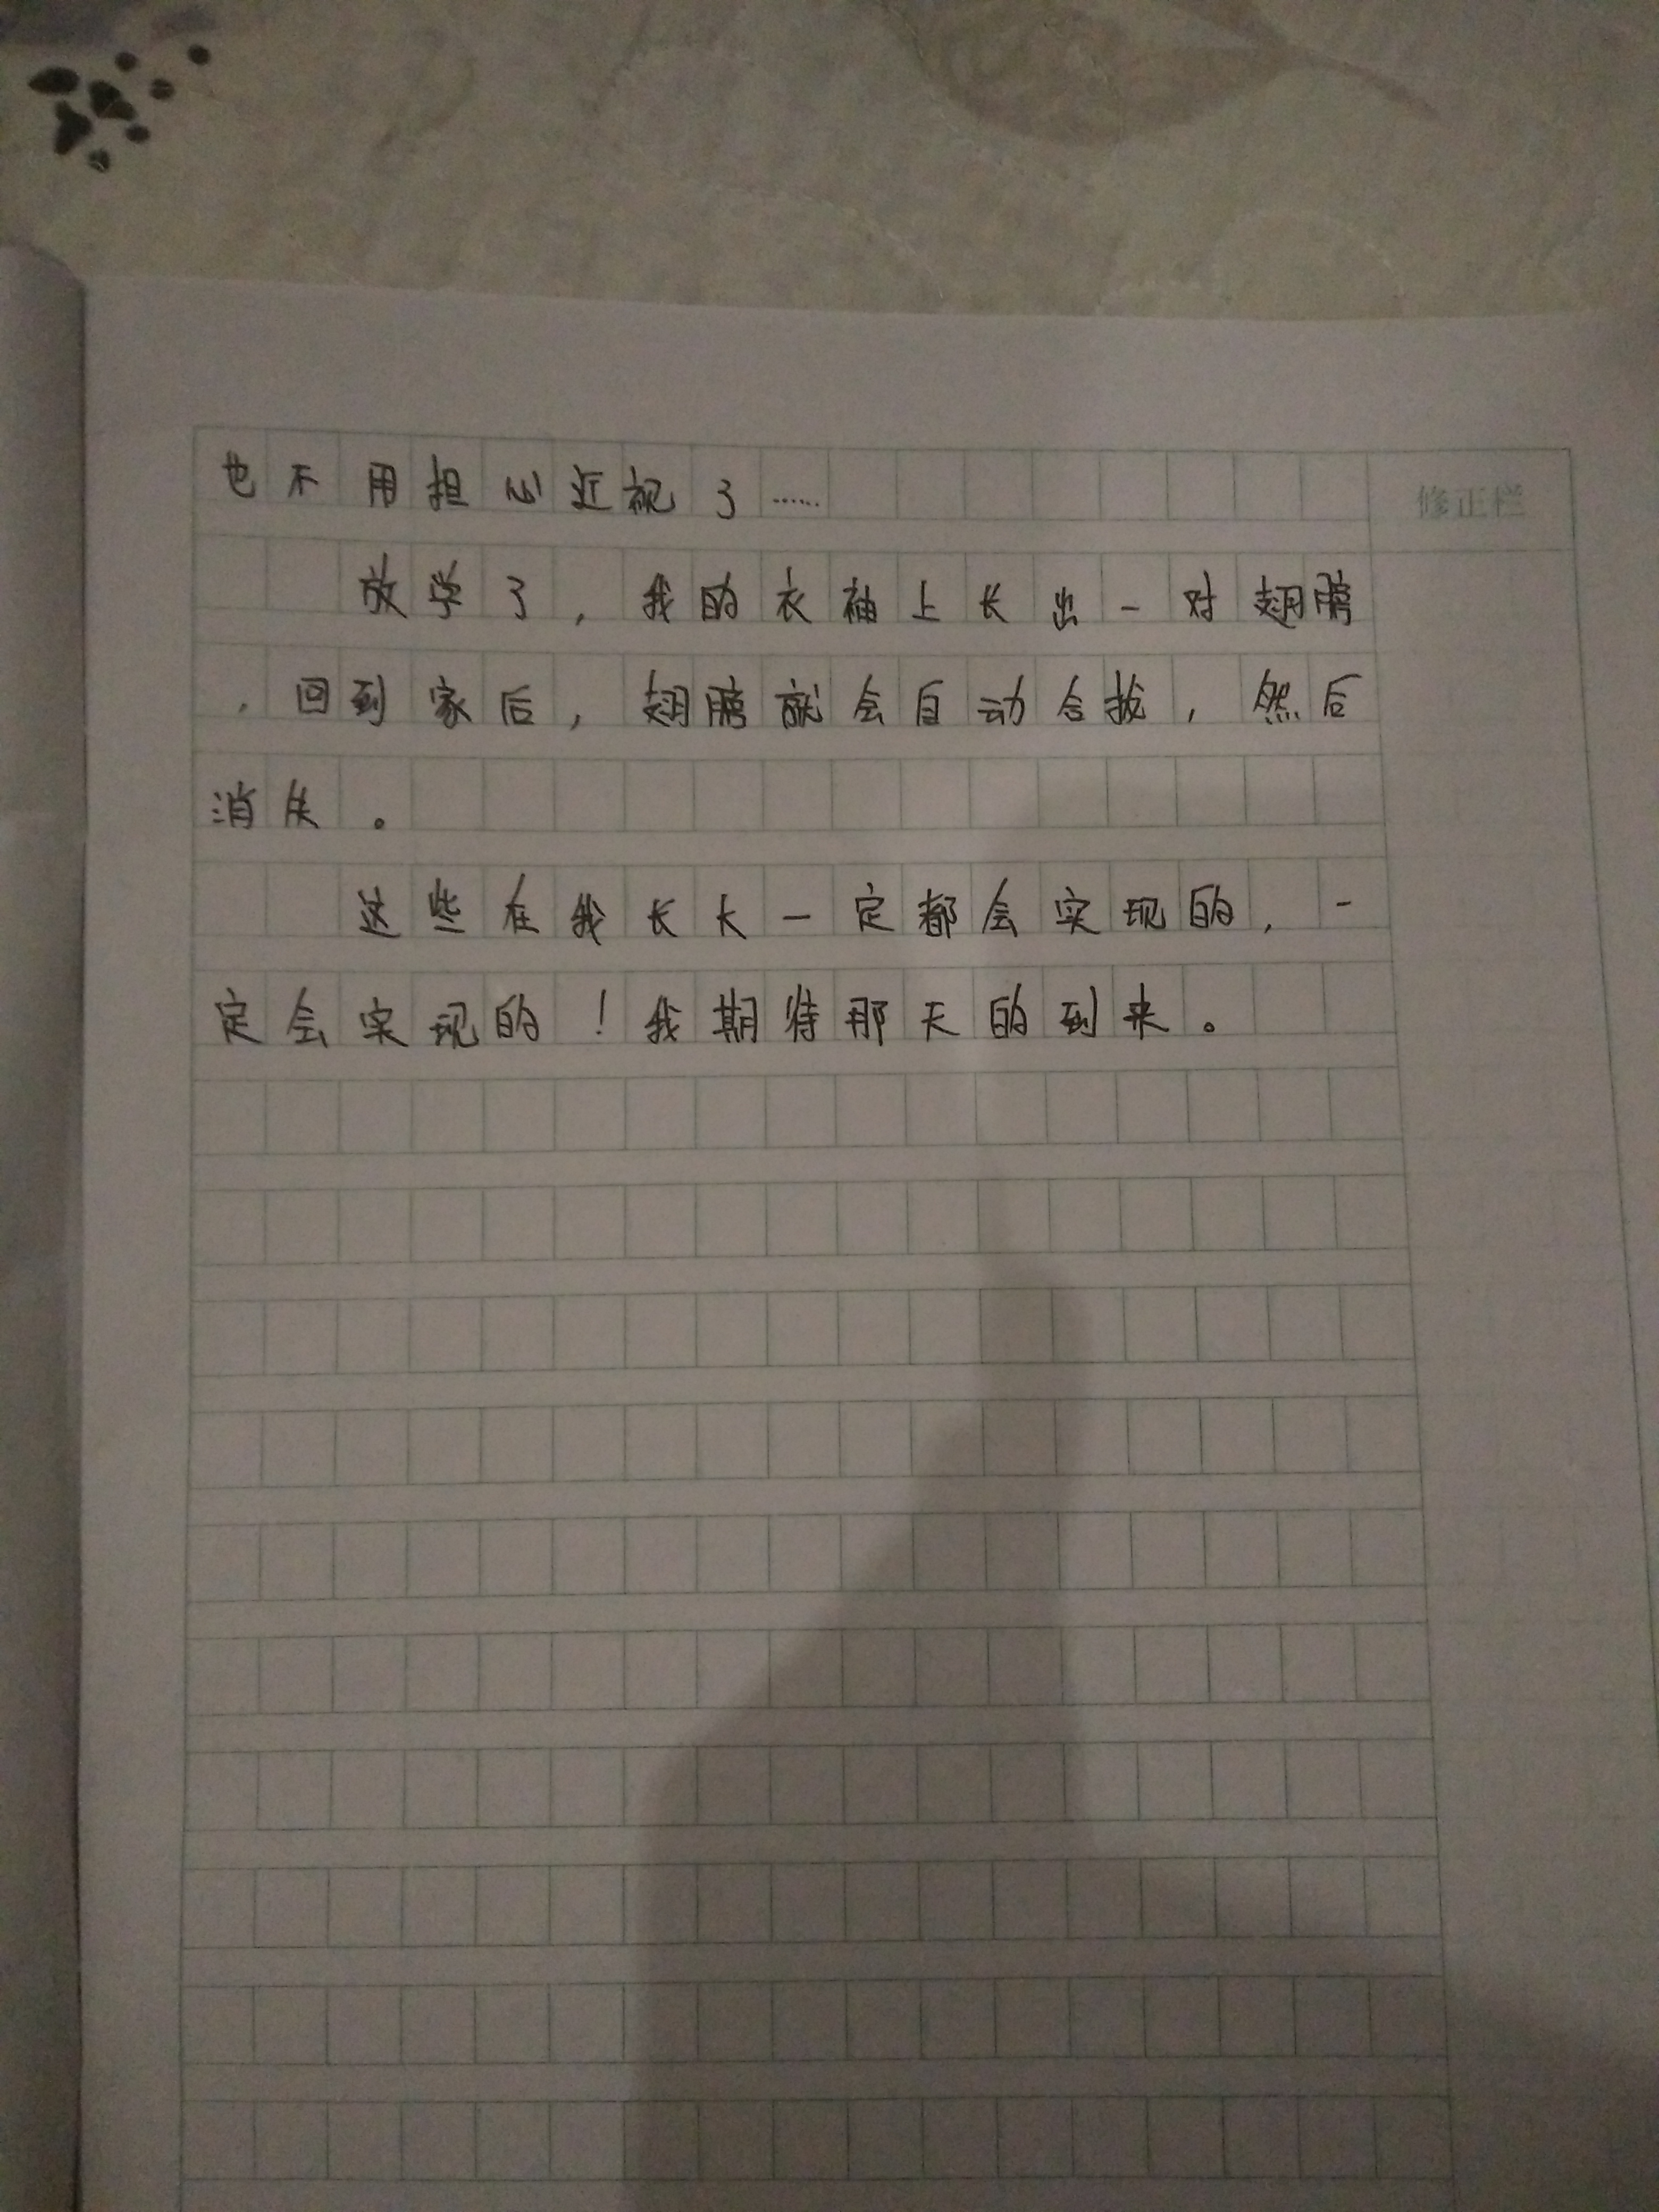 也不用担心近视了……
修正栏
放学了，我的衣袖上长出一对翅膀
，回到家后，翅膀就会自动合拔，然后
消失。
这些在我长大一定都会实现的，一
定会实现的！我期待那天的到来。